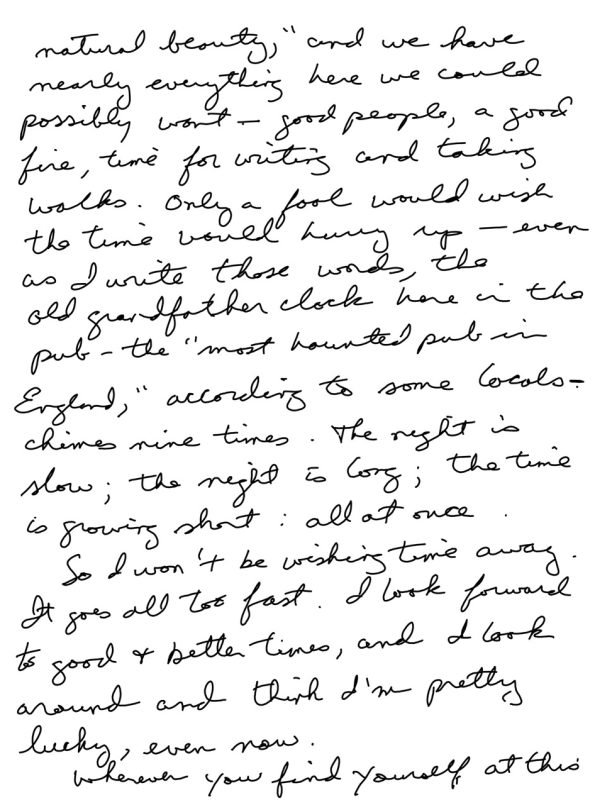 natural beauty," and we have
nearly everything here we could
possibly want - good people, a good
fire, time for writing and taking
walks. Only a fool would wish
the time would hurry up - even
as I write those words, the
old grandfather clock here in the
pub - the "most haunted pub in
England," according to some locals -
chimes nine times. The night is
slow; the night is long; the time
is growing short: all at once.
So I won't be wishing time away.
It goes all too fast. I look forward
to good & better times, and I look
around and think I'm pretty
lucky, even now.
Wherever you find yourself at this